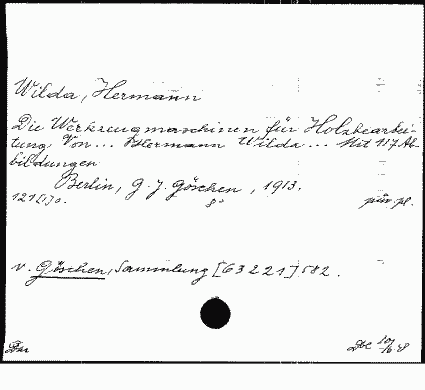 Wilda, Hermann
Die Werkzeugmaschinen für Holzbearbei-
tung. Von... Hermann Wilda... Mit 117 Ab-
bildungen
Berlin, G. J. Göschen, 1913.
121 [1] p. 8°
v. Göschen, Sammlung [63221] 582.